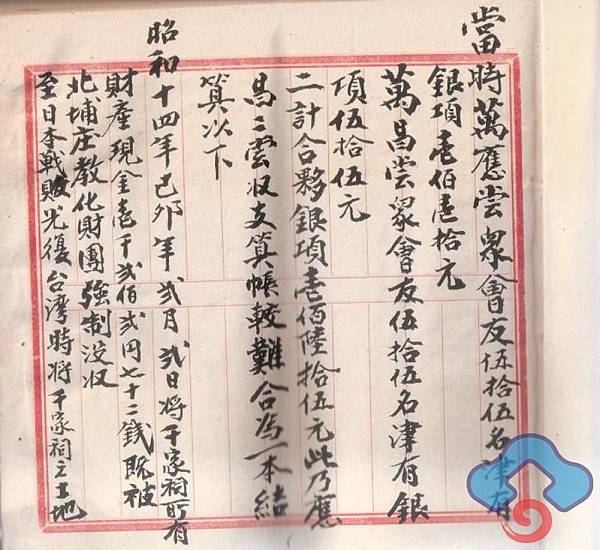 當時萬應尝衆會友伍拾伍名津有
銀項壱佰壱拾元
萬昌尝衆會友伍拾伍名津有銀
項伍拾伍元
二計合夥銀項壱佰陸拾伍元此乃應
昌二尝収支算帳較難合爲一本結
算以下
昭和十四年己卯年弍月弍日将千家祠所有
財產現金壱千弍佰弍円七十二銭既被
北埔庄教化財團強制没収
至日本戦敗光復台湾時将千家祠之土地